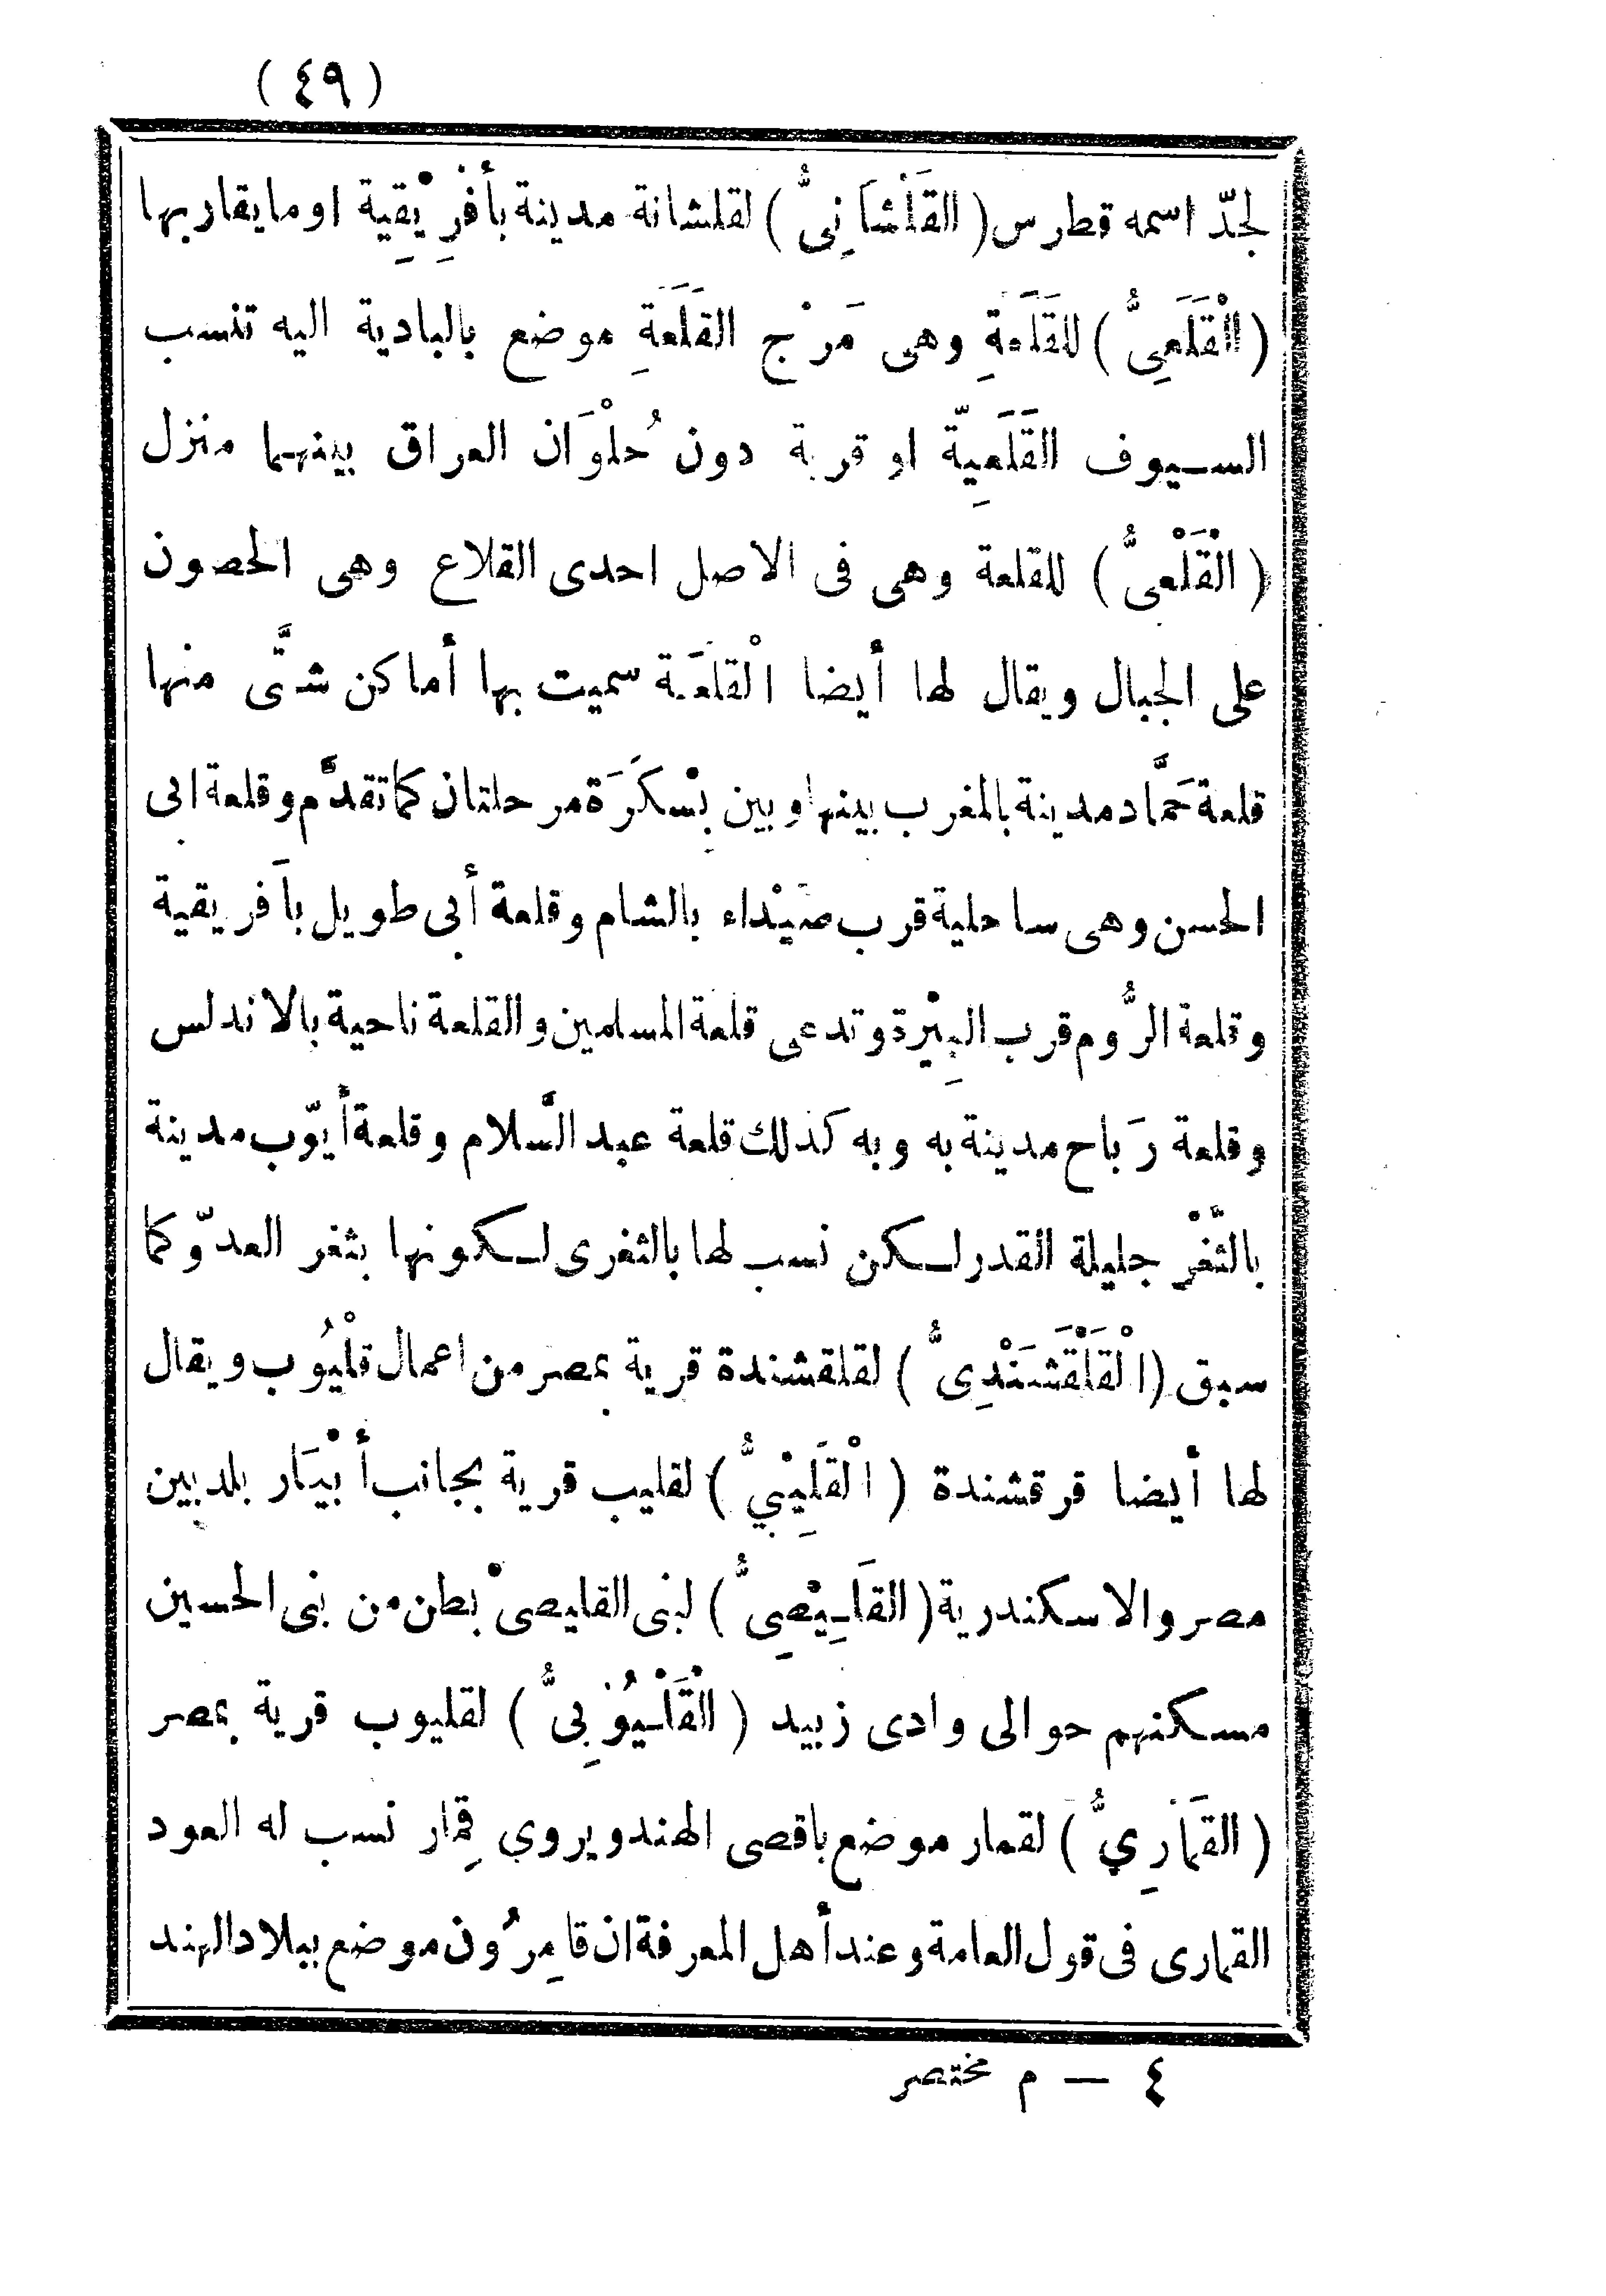 (٤٩)
لجدّ اسمه قطرس (القَلْشَانِىُّ) لقلشانة مدينة بأفْرِيْقِية او ما يقاربها
(الْقَلَعِىُّ) للقَلَعَةِ وهى مَرْج القَلَعَةِ موضع بالبادية اليه تنسب
السيوف القَلَعِيّة او قرية دون حُلْوَان العراق بينهما منزل
(الْقَلْعىُّ) للقلعة وهى فى الاصل احدى القلاع وهى الحصون
على الجبال ويقال لها أيضا الْقلعَة سميت بها أماكن شتَّى منها
قلعة حَمَّاد مدينة بالمغرب بينها وبين بِسْكَرَة مرحلتان كما تقدَّم وقلعة ابى
الحسن وهى ساحلية قرب صَيْداء بالشام وقلعة أبى طويل بأَفريقية
وقلعة الرُّوم قرب البِيْرة وتدعى قلعة المسلمين والقلعة ناحية بالاندلس
وقلعة رَباح مدينة به وبه كذلك قلعة عبد السَّلام وقلعة أَيوّب مدينة
بالثَّغْر جليلة القدر لكن نسب لها بالثغرى لكونها بثغر العدوّ كما
سبق (الْقَلْقَشَنْدِىُّ) لقلقشندة قرية بمصر من اعمال قلْيُوب ويقال
لها أيضا قرقشندة (الْقَلِيْبيُّ) لقليب قرية بجانب أبْيَار بلد بين
مصر والاسكندرية (القَلِيْصِىُّ) لبنى القليصىْ بطن من بنى الحسين
مسكنهم حوالى وادى زبيد (الْقَلْيُوْبِىُّ) لقليوب قرية بمصر
(القَمَارِيُّ) لقمار موضع باقصى الهند ويروي قِمار نسب له العود
القمارى فى قول العامة وعند أهل المعرفة ان قامِرُون موضع ببلاد الهند
٤ — م مختصر